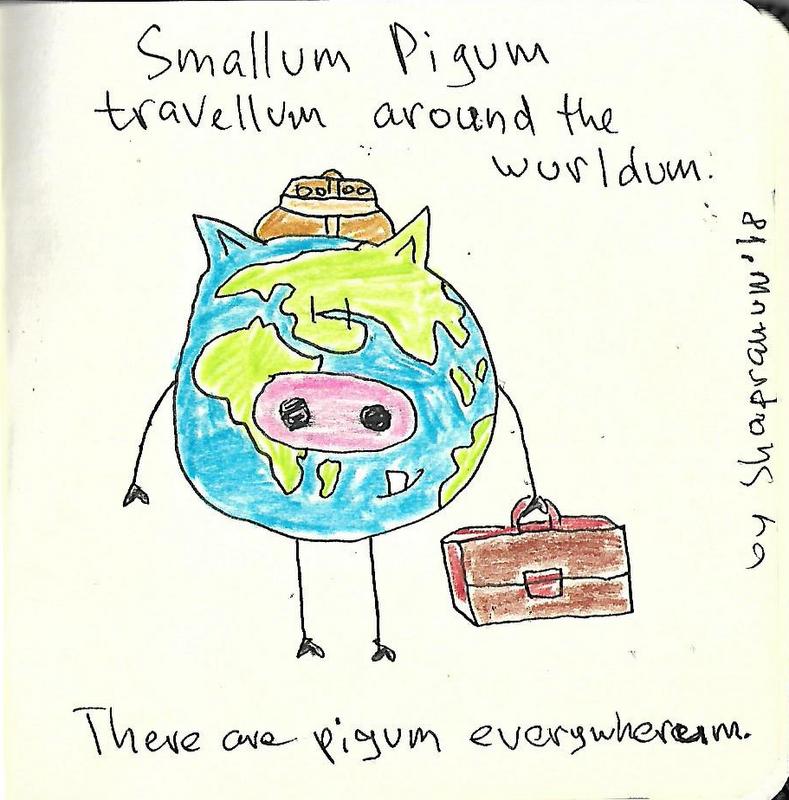 Smallum Pigum
travellum around the
wurldum.
by Shapranum'18
There are pigum everywhereum.